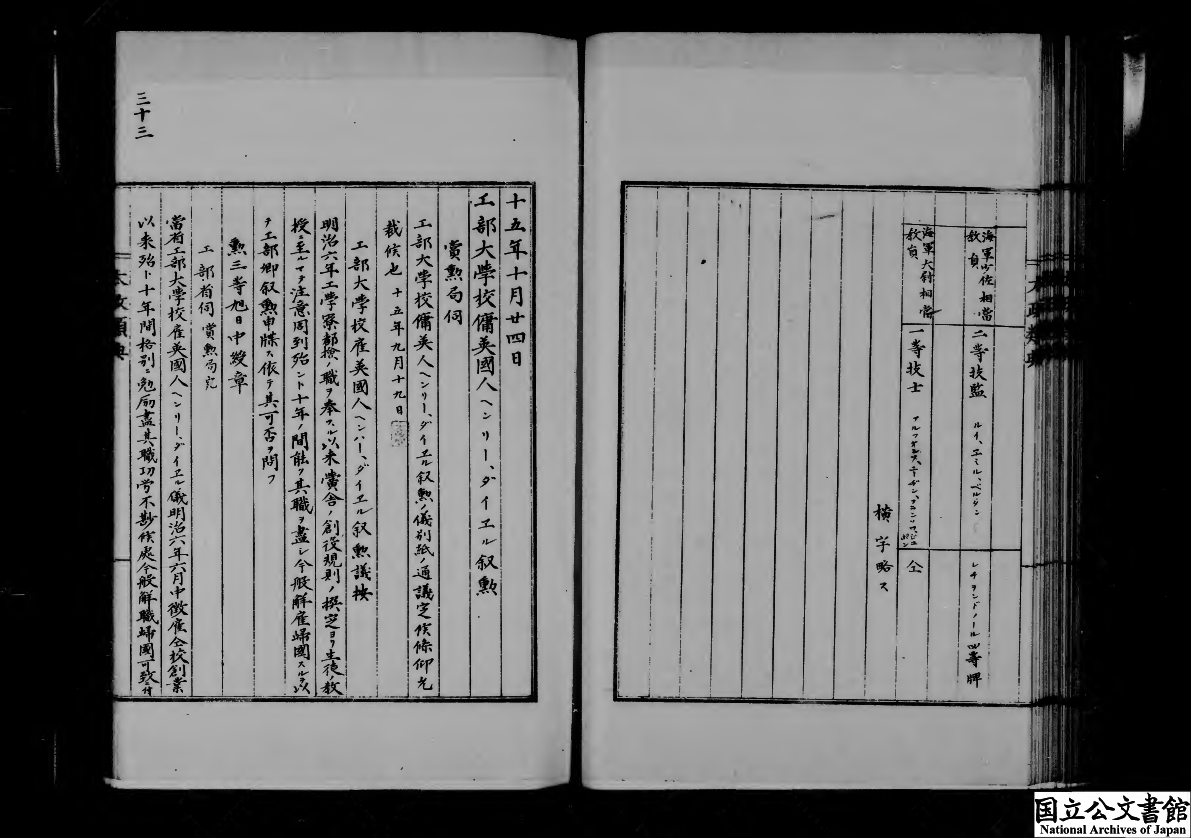 海軍少佐相當
教員
二等技監
ルイ、エミル、ベルタン
レチヲンドノール四等牌
海軍大尉相當
教員
一等技士
仝
横字略ス
十五年十月廿四日
工部大學校傭英國人ヘンリー、ダイエル叙勲
賞勲局伺
工部大學校傭英人ヘンリー、ダイエル叙勲ノ儀別紙ノ通議定候條仰允
裁候也 十五年九月十九日
工部大學校雇英國人ヘンハー、ダイエル叙勲議按
明治六年工學寮都檢ノ職ヲ奉スル以来黌舎ノ創役規則ノ撰定ヨリ生徒ノ教
授ニ至ルマテ注意周到殆ント十年ノ間能ク其職ヲ盡シ今般解雇婦國スルヲ以
テ工部卿叙勲申牒ス依テ其可否ヲ問フ
勲三等旭日中綬章
工部省伺 賞勲局宛
當省工部大學校雇英國人ヘンリー、ダイエル儀明治六年六月中徴雇仝校創業
以来殆ト十年間格別ニ勉励盡其職功労不尠候處今般解職婦國可致ニ付
太政類典
三十三
国立公文書館
National Archives of Japan